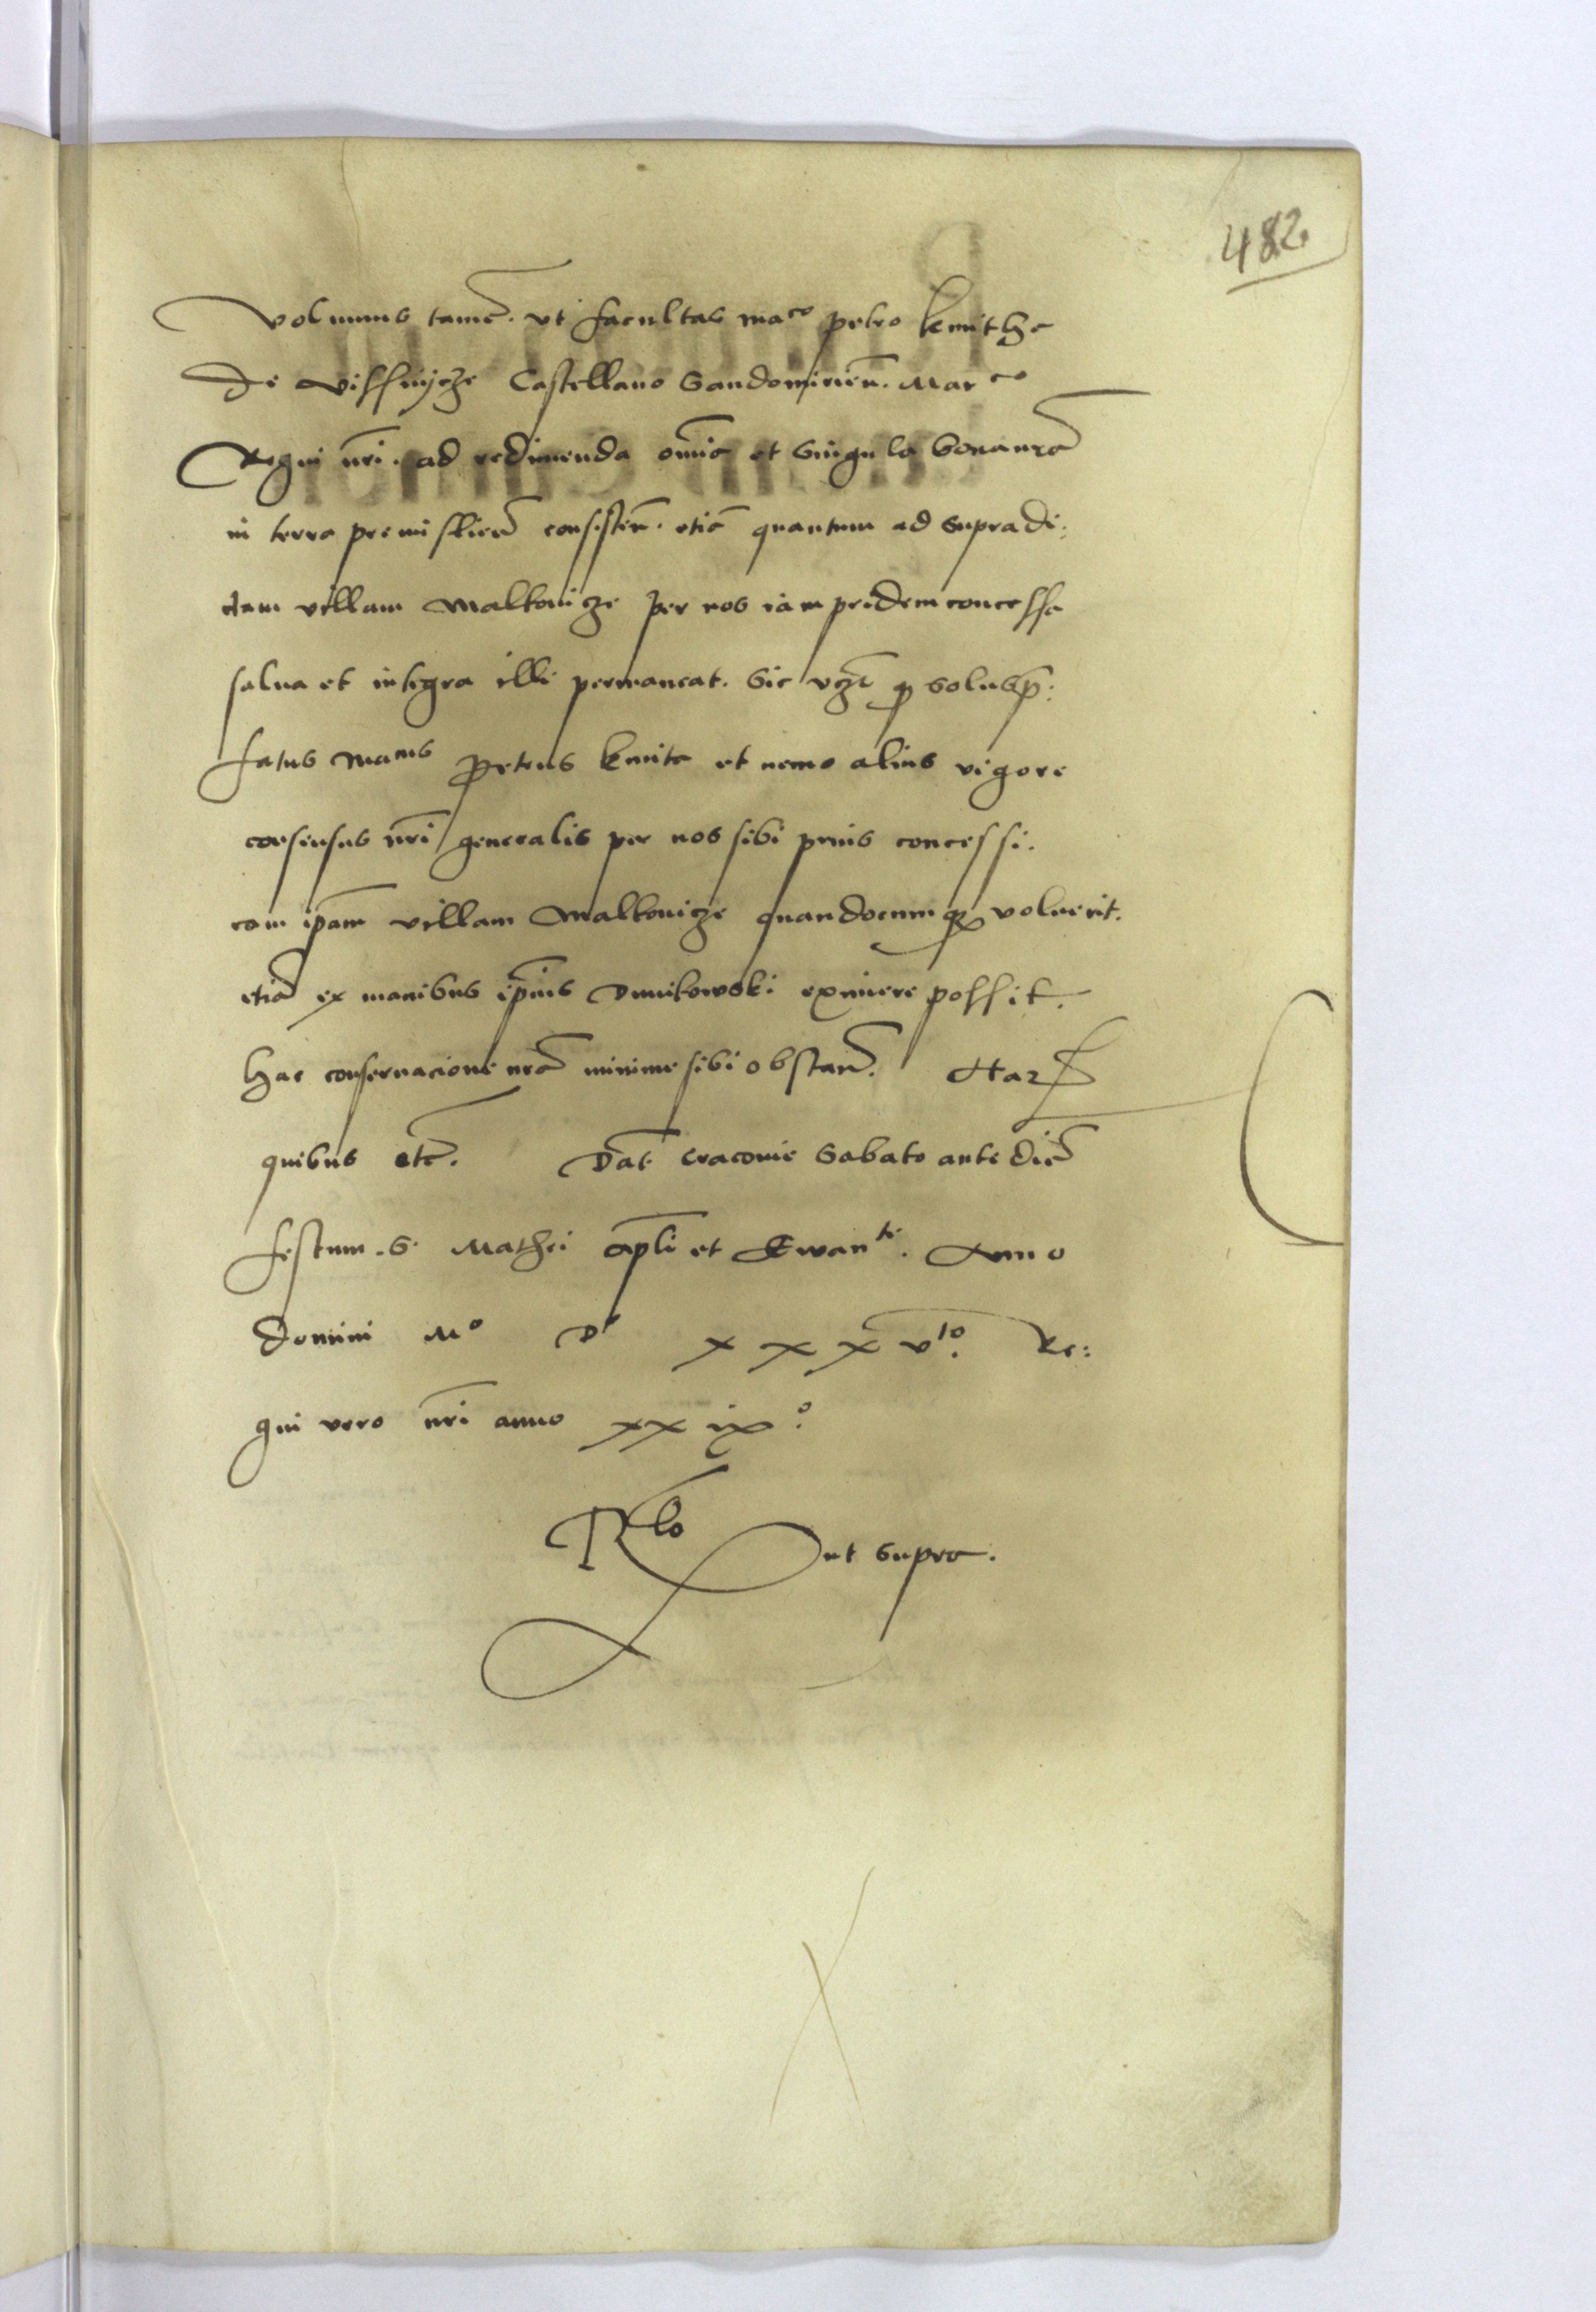 482.
Volumus tamē. vt facultas maco petro kmitha
De vissnijcze Castellano Sandomirieñ. Marco
Regni nr̄i. ad redimenda om̄ia et singula bona nr̄a
in terra premislieñ consisteñ. etiā quantum ad supradi:
ctam villam Malkouicze per nos iam pridem concessa
salua et integra illi permaneat. Sic vcz̄t q solus p̄:
fatus Macus Petrus kmita et nemo alius vigore
consensus nr̄i generalis per nos sibi prius concessi.
eam ip̄am villam Malkouicze quandocumqz voluerit.
etiā ex manibus ip̄ius Dmikowski eximere possit.
hac conseruacione nr̄a minime sibi obstañ. Har
quibus etc̄. Dat̄ Cracouie Sabato ante diē
festum. S. Mathei apl̄i et Ewante. Anno
Domini Mo Do xxx vto. Re:
gni vero nr̄i anno xxixo.
Rlo ut supra.